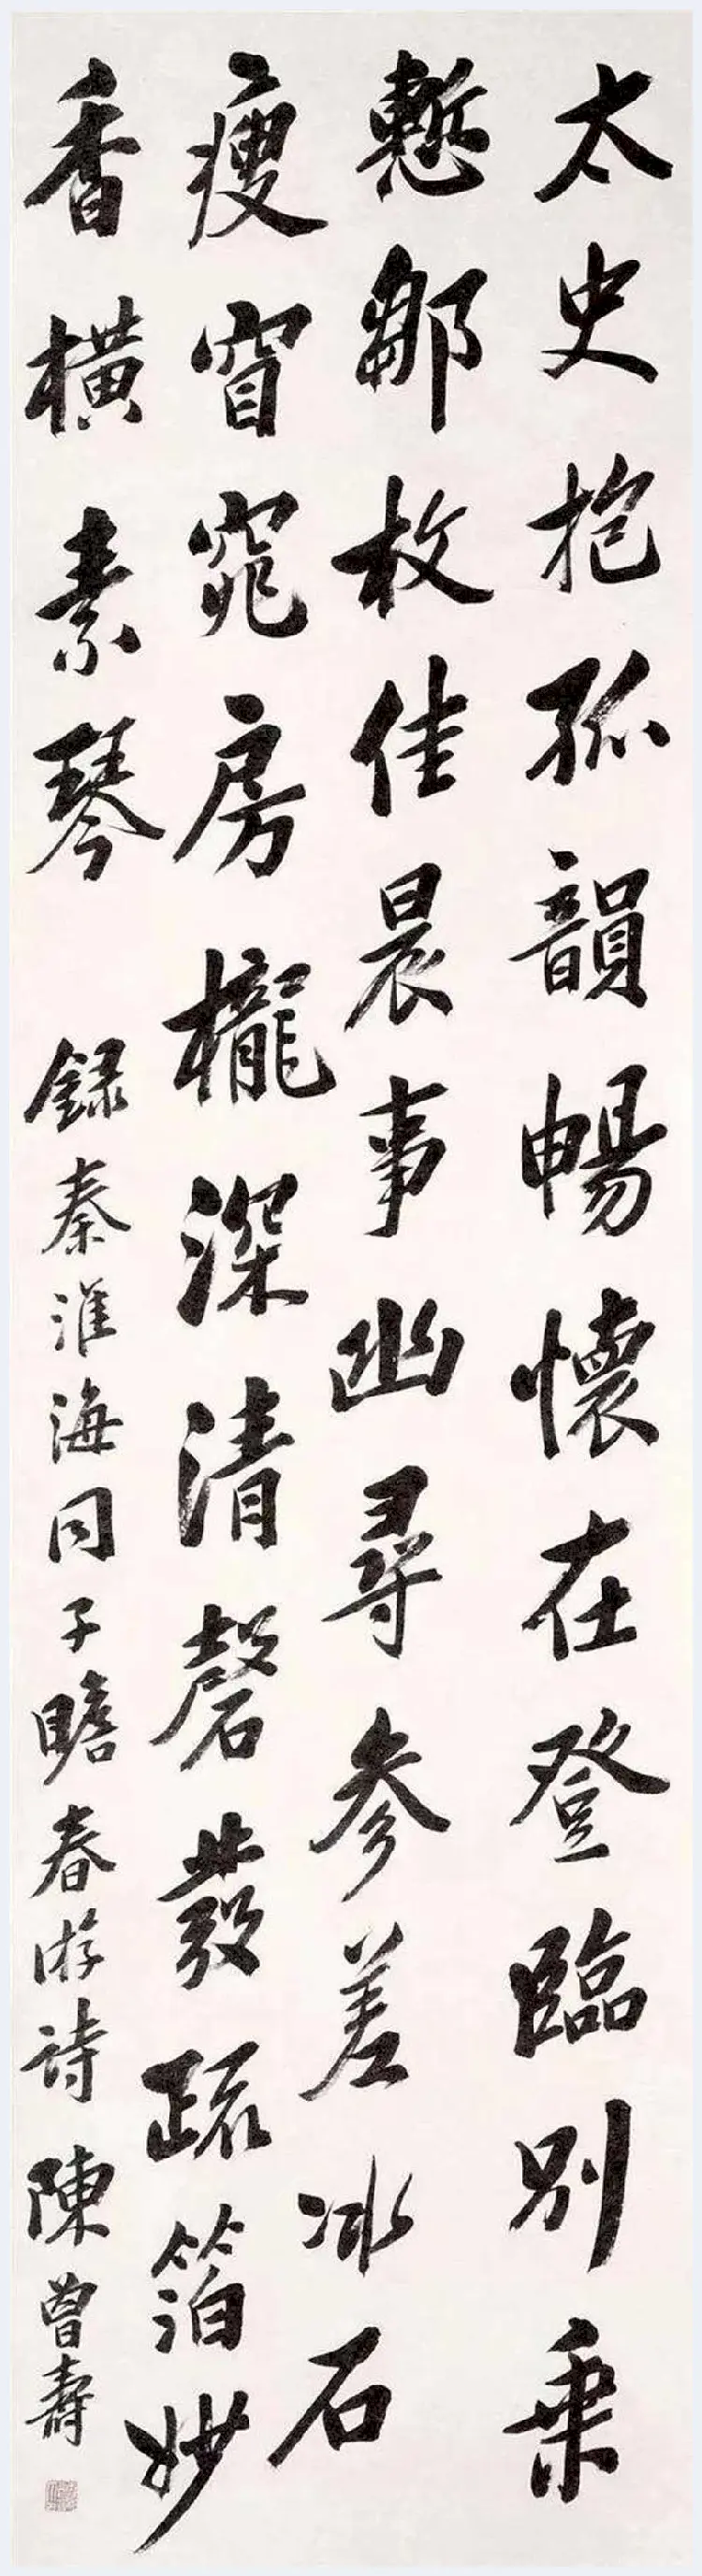 太史抱孤韻暢懷在登臨別乗
慙鄒枚佳晨事幽尋參差冰石
瘦窅窕房櫳深清磬發疏箔妙
香橫素琴 録秦淮海同子瞻春游詩陳曾壽